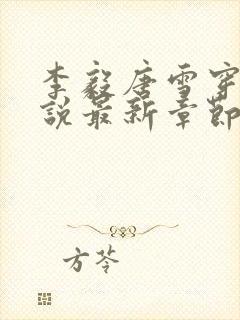 李毅唐雪穿
说最新章节
方苓